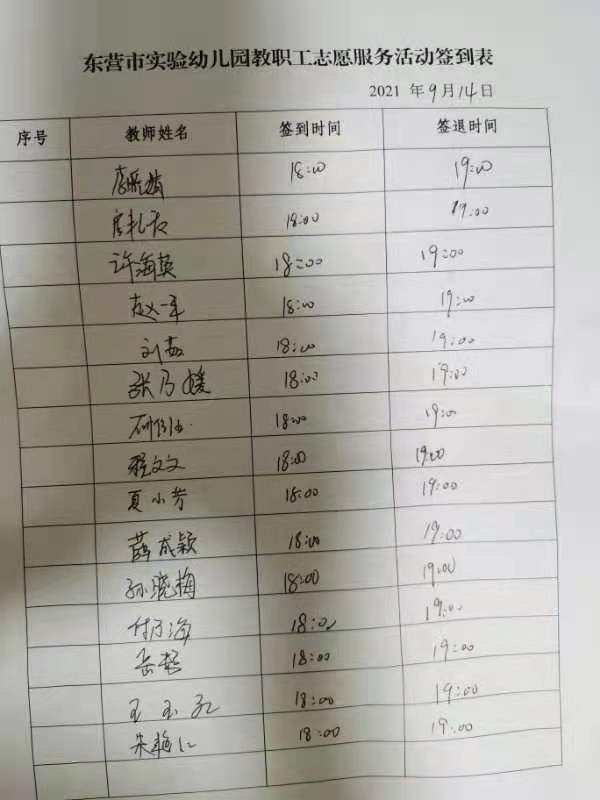 东营市实验幼儿园教职工志愿服务活动签到表
2021 年9月14日
序号 教师姓名 签到时间 签退时间
18:00 19:00
18:00 19:00
许海英 18:00 19:00
赵一军 18:00 19:00
刘茹 18:00 19:00
张乃媛 18:00 19:00
18:00 19:00
程文文 18:00 19:00
夏小芳 18:00 19:00
薛成颖 18:00 19:00
孙晓梅 18:00 19:00
付乃海 18:00 19:00
岳超 18:00 19:00
王玉孔 18:00 19:00
朱艳仁 18:00 19:00